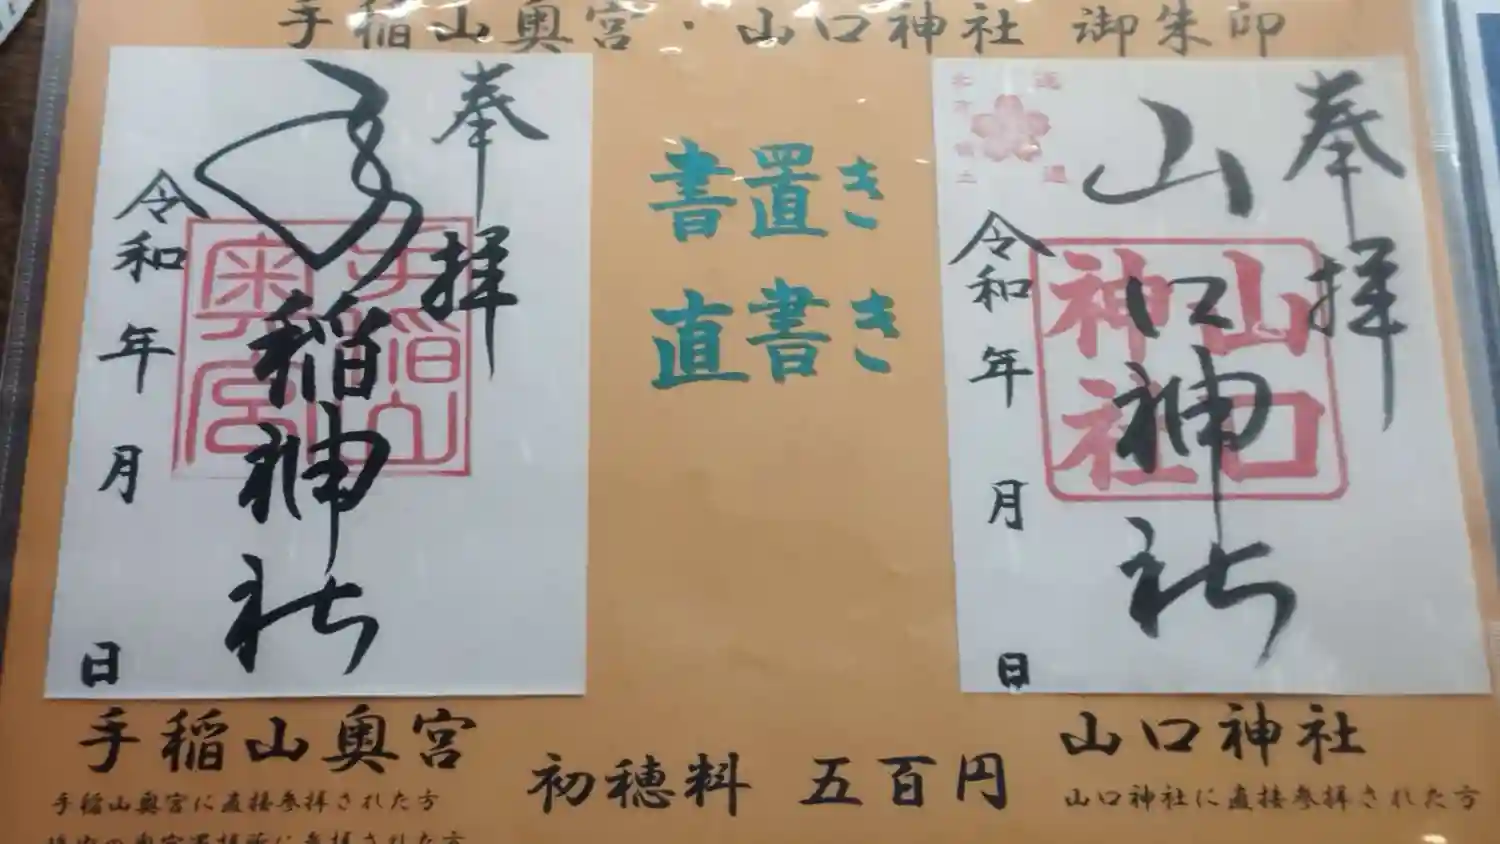 手稲山奥宮・山口神社 御朱印
奉拝
手稲神社
令和 年 月 日
手稲山奥宮
書置き
直書き
奉拝
山口神社
令和 年 月 日
山口神社
手稲山奥宮
手稲山奥宮に直接参拝された方
初穂料 五百円
山口神社
山口神社に直接参拝された方